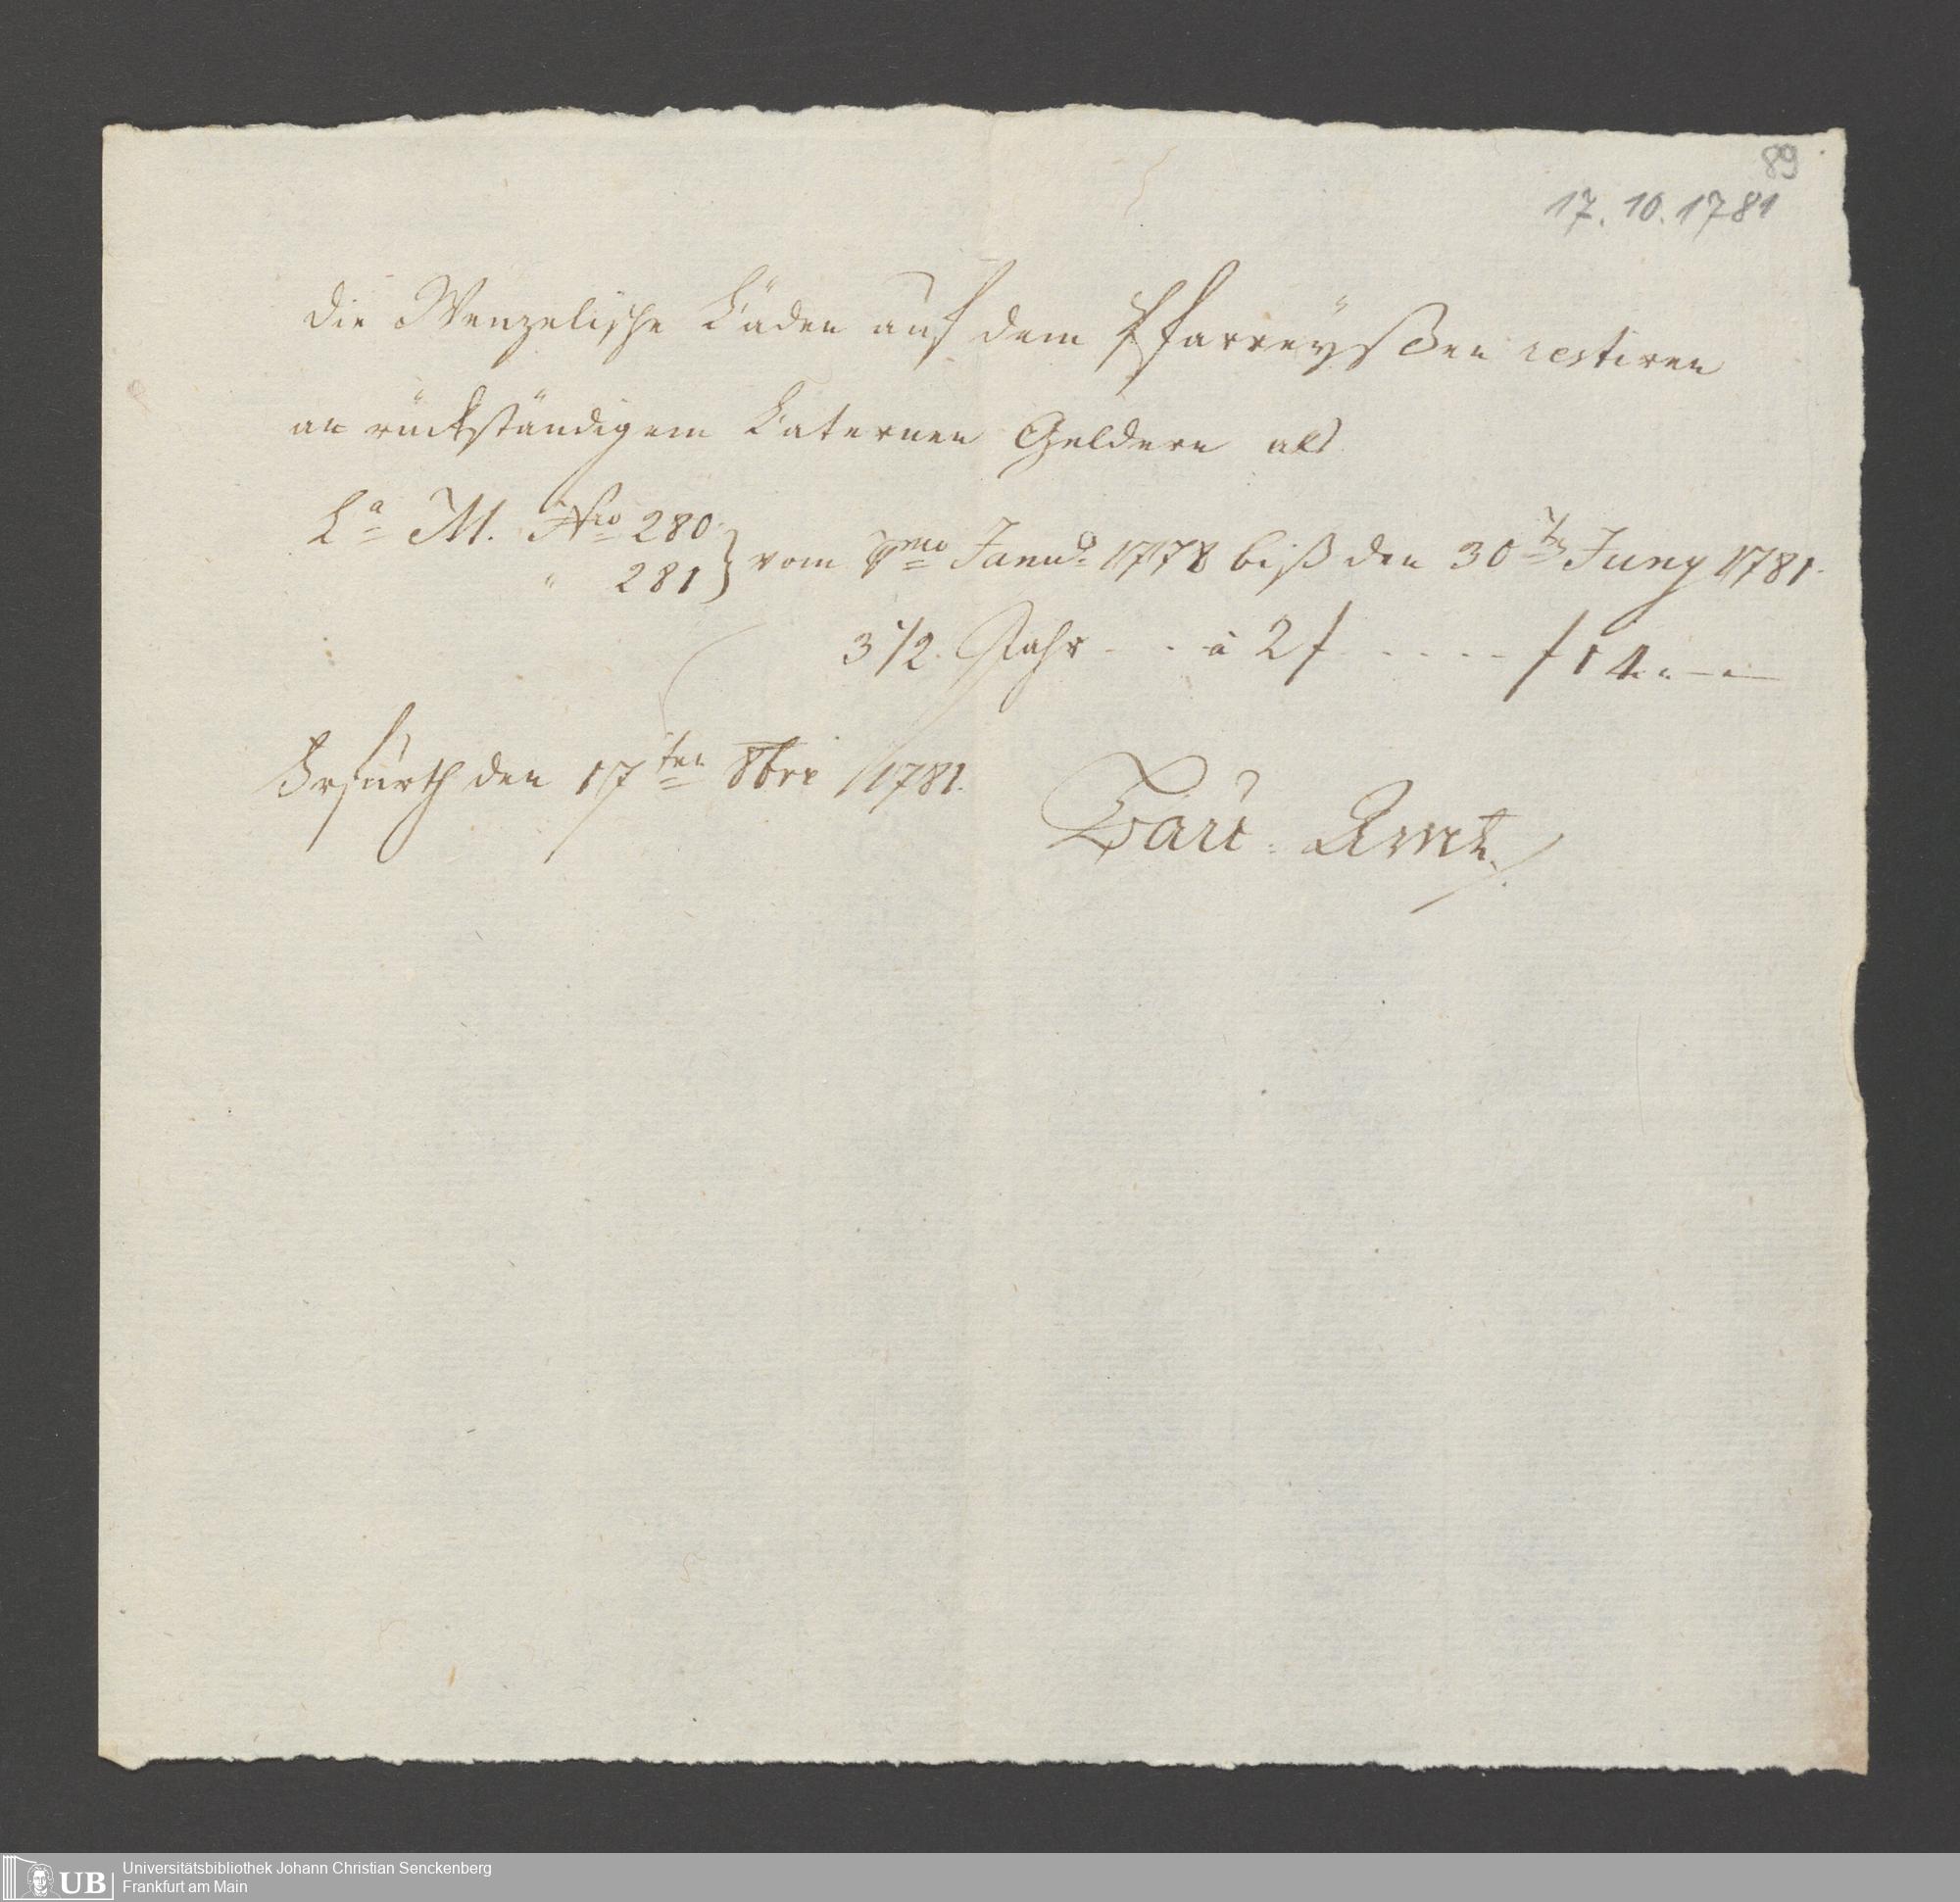 89
17. 10. 1781
Die Wenzelische Läden auf dem Pfarreyßen restiren
an rückständigem Laternen Geldern als
La M. Nro 280
" 281 } vom 1mo Janu: 1778 biß den 30ten Juny 1781.
3 1/2. Jahr - - à 2 f - - - - - f 14. " — " —
Erfurth den 17ten 8bre 1781.
Bau: Amt.
Universitätsbibliothek Johann Christian Senckenberg
Frankfurt am Main
UB